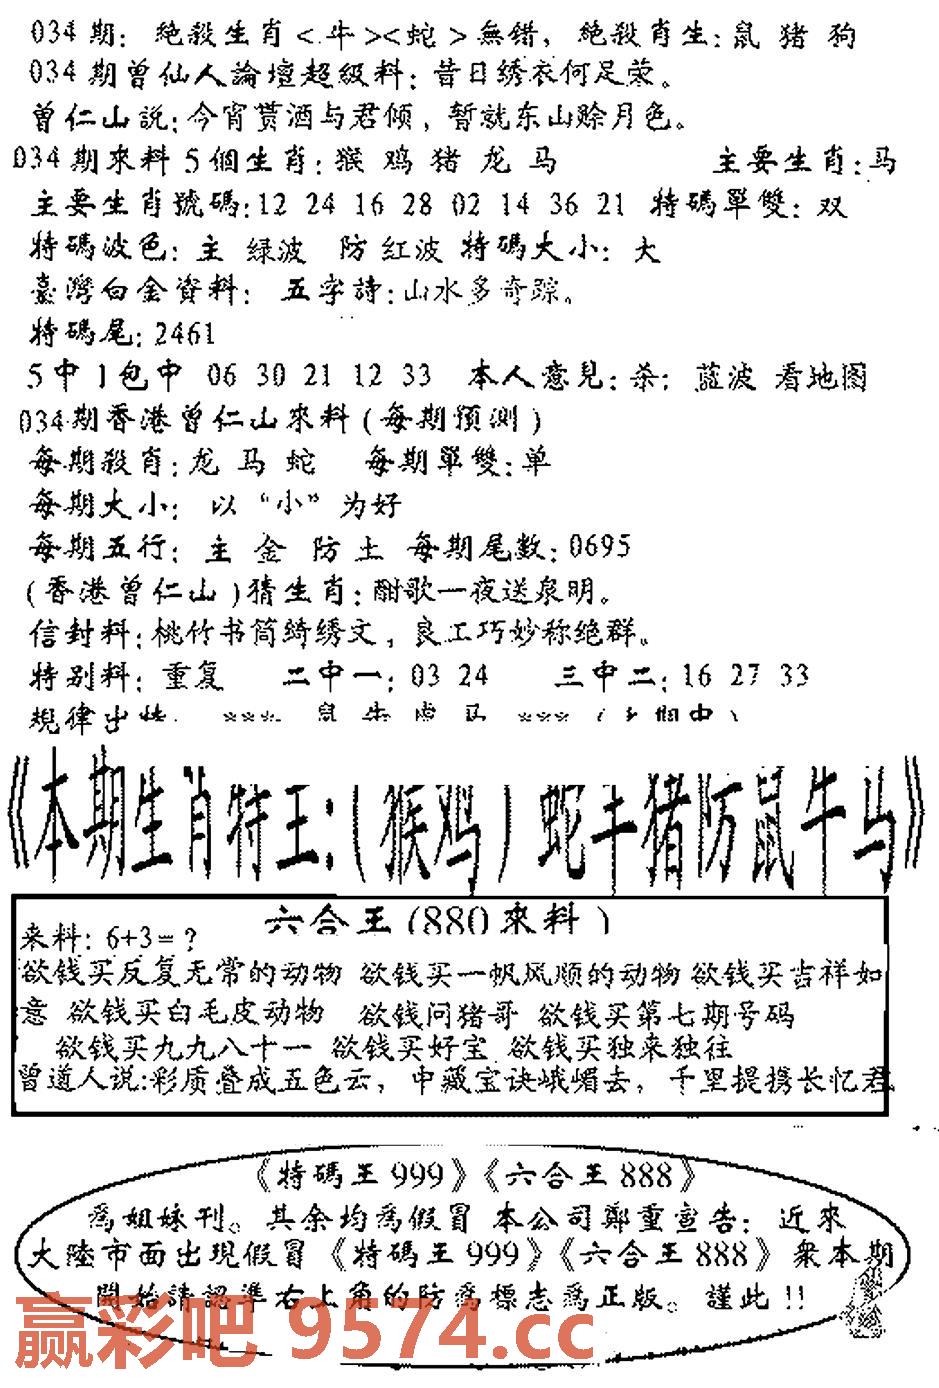 034期：絶殺生肖<牛><蛇>無錯，絶殺肖生：鼠 猪 狗
034期曾仙人論壇超級料：昔日绣衣何足荣。
曾仁山説：今宵贳酒与君倾，暂就东山赊月色。
034期來料5個生肖：猴 鸡 猪 龙 马 主要生肖：马
主要生肖號碼：12 24 16 28 02 14 36 21 特碼單雙：双
特碼波色：主 绿波 防 红波 特碼大小：大
臺灣白金資料： 五字詩：山水多奇踪。
特碼尾：2461
5中1包中 06 30 21 12 33 本人意見：杀：蓝波 看地图
034期香港曾仁山來料(每期預测)
每期殺肖：龙 马 蛇 每期單雙：单
每期大小： 以“小”为好
每期五行：主 金 防 土 每期尾数：0695
(香港曾仁山)猜生肖：酣歌一夜送泉明。
信封料：桃竹书筒绮绣文，良工巧妙称绝群。
特别料：重复 二中一：03 24 三中二：16 27 33
規律出特： *** 鼠 牛 虎 马 ***
《本期生肖特王：(猴鸡)蛇羊猪防鼠牛马》
六合王(880來料)
来料：6+3=？
欲钱买反复无常的动物 欲钱买一帆风顺的动物 欲钱买吉祥如
意 欲钱买白毛皮动物 欲钱问猪哥 欲钱买第七期号码
欲钱买九九八十一 欲钱买好宝 欲钱买独来独往
曾道人说:彩质叠成五色云，中藏宝诀峨嵋去，千里提携长忆君
《特碼王999》《六合王888》
爲姐妹刊。其余均爲假冒 本公司鄭重宣告：近來
大陸市面出現假冒《特碼王999》《六合王888》衆本期
開始請認準右上角的防爲標志爲正版。謹此!!
赢彩吧 9574.cc